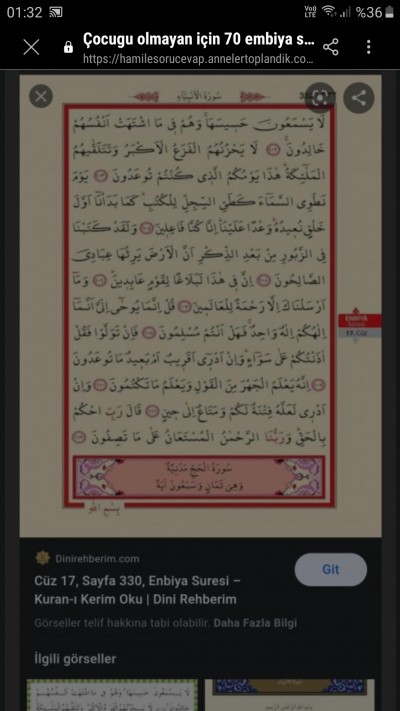 01:32 Voj) LTE %36
Çocugu olmayan için 70 embiya s...
https://hamilesorucevap.annelertoplandik.co...
سُورَةُ الْاَنْبِيَاءِ
لَا يَسْمَعُونَ حَسِيسَهَا وَهُمْ فِي مَا اشْتَهَتْ اَنْفُسُهُمْ
خَالِدُونَ لَا يَحْزُنُهُمُ الْفَزَعُ الْاَكْبَرُ وَتَتَلَقّٰيهُمُ
الْمَلٰٓئِكَةُ هٰذَا يَوْمُكُمُ الَّذِي كُنْتُمْ تُوعَدُونَ يَوْمَ
نَطْوِي السَّمَاءَ كَطَيِّ السِّجِلِّ لِلْكُتُبِ كَمَا بَدَأْنَا اَوَّلَ
خَلْقٍ نُعِيدُهُ وَعْدًا عَلَيْنَا اِنَّا كُنَّا فَاعِلِينَ وَلَقَدْ كَتَبْنَا
فِي الزَّبُورِ مِنْ بَعْدِ الذِّكْرِ اَنَّ الْاَرْضَ يَرِثُهَا عِبَادِيَ
الصَّالِحُونَ اِنَّ فِي هٰذَا لَبَلَاغًا لِقَوْمٍ عَابِدِينَ وَمَا
اَرْسَلْنَاكَ اِلَّا رَحْمَةً لِلْعَالَمِينَ قُلْ اِنَّمَا يُوحٰى اِلَيَّ اَنَّمَا
اِلٰهُكُمْ اِلٰهٌ وَاحِدٌ فَهَلْ اَنْتُمْ مُسْلِمُونَ فَاِنْ تَوَلَّوْا فَقُلْ
اٰذَنْتُكُمْ عَلٰى سَوَاءٍ وَاِنْ اَدْرِي اَقَرِيبٌ اَمْ بَعِيدٌ مَا تُوعَدُونَ
اِنَّهُ يَعْلَمُ الْجَهْرَ مِنَ الْقَوْلِ وَيَعْلَمُ مَا تَكْتُمُونَ وَاِنْ
اَدْرِي لَعَلَّهُ فِتْنَةٌ لَكُمْ وَمَتَاعٌ اِلٰى حِينٍ قَالَ رَبِّ احْكُمْ
بِالْحَقِّ وَرَبُّنَا الرَّحْمٰنُ الْمُسْتَعَانُ عَلٰى مَا تَصِفُونَ
سُورَةُ الْحَجِّ مَدَنِيَّةٌ
وَهِيَ ثَمَانٍ وَسَبْعُونَ اٰيَةً
بِسْمِ اللّٰهِ
ENBİYÂ
17. Cüz
Dinirehberim.com
Cüz 17, Sayfa 330, Enbiya Suresi –
Kuran-ı Kerim Oku | Dini Rehberim
Git
Görseller telif hakkına tabi olabilir. Daha Fazla Bilgi
İlgili görseller